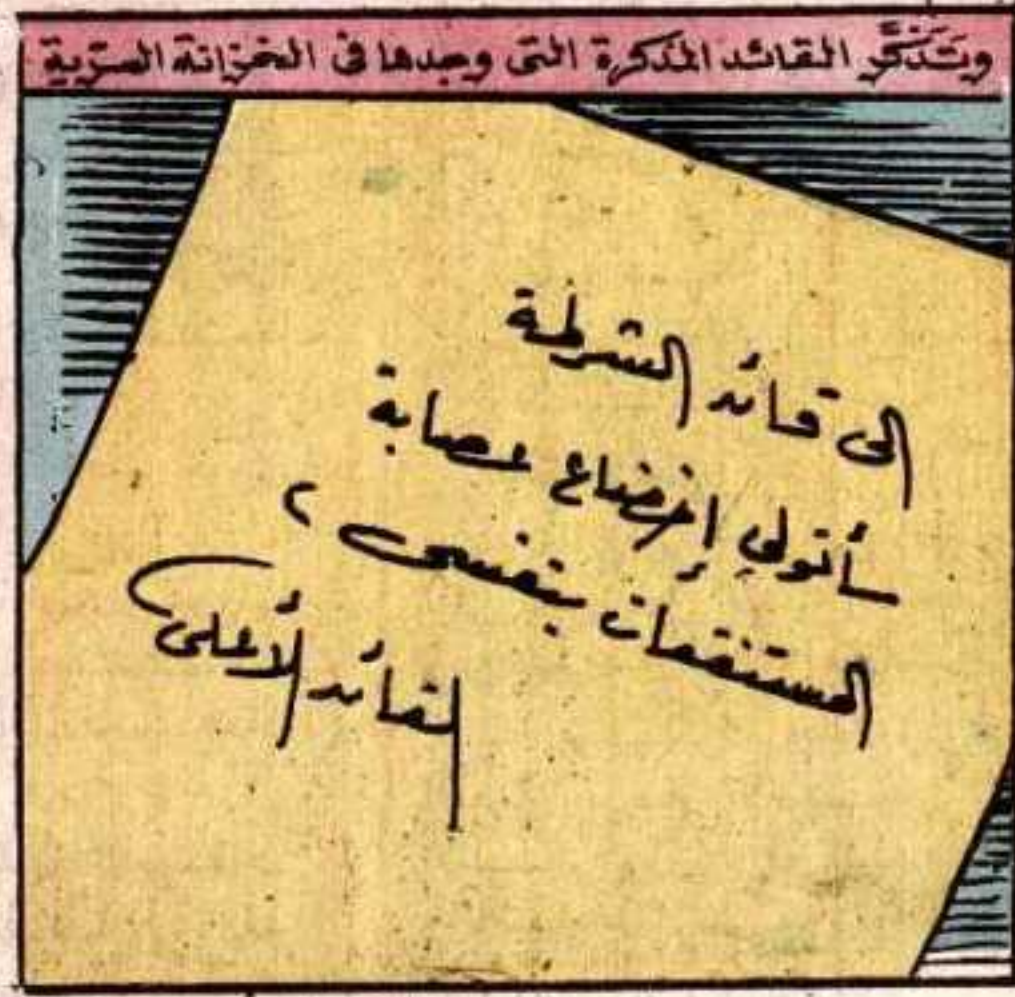 وتذكّر القائد المذكرة التى وجدها فى الخزانة السرّية
الى قائد الشرطة
سأتولى إخضاع عصابة
المستنقعات بنفسى ،
القائد الأعلى